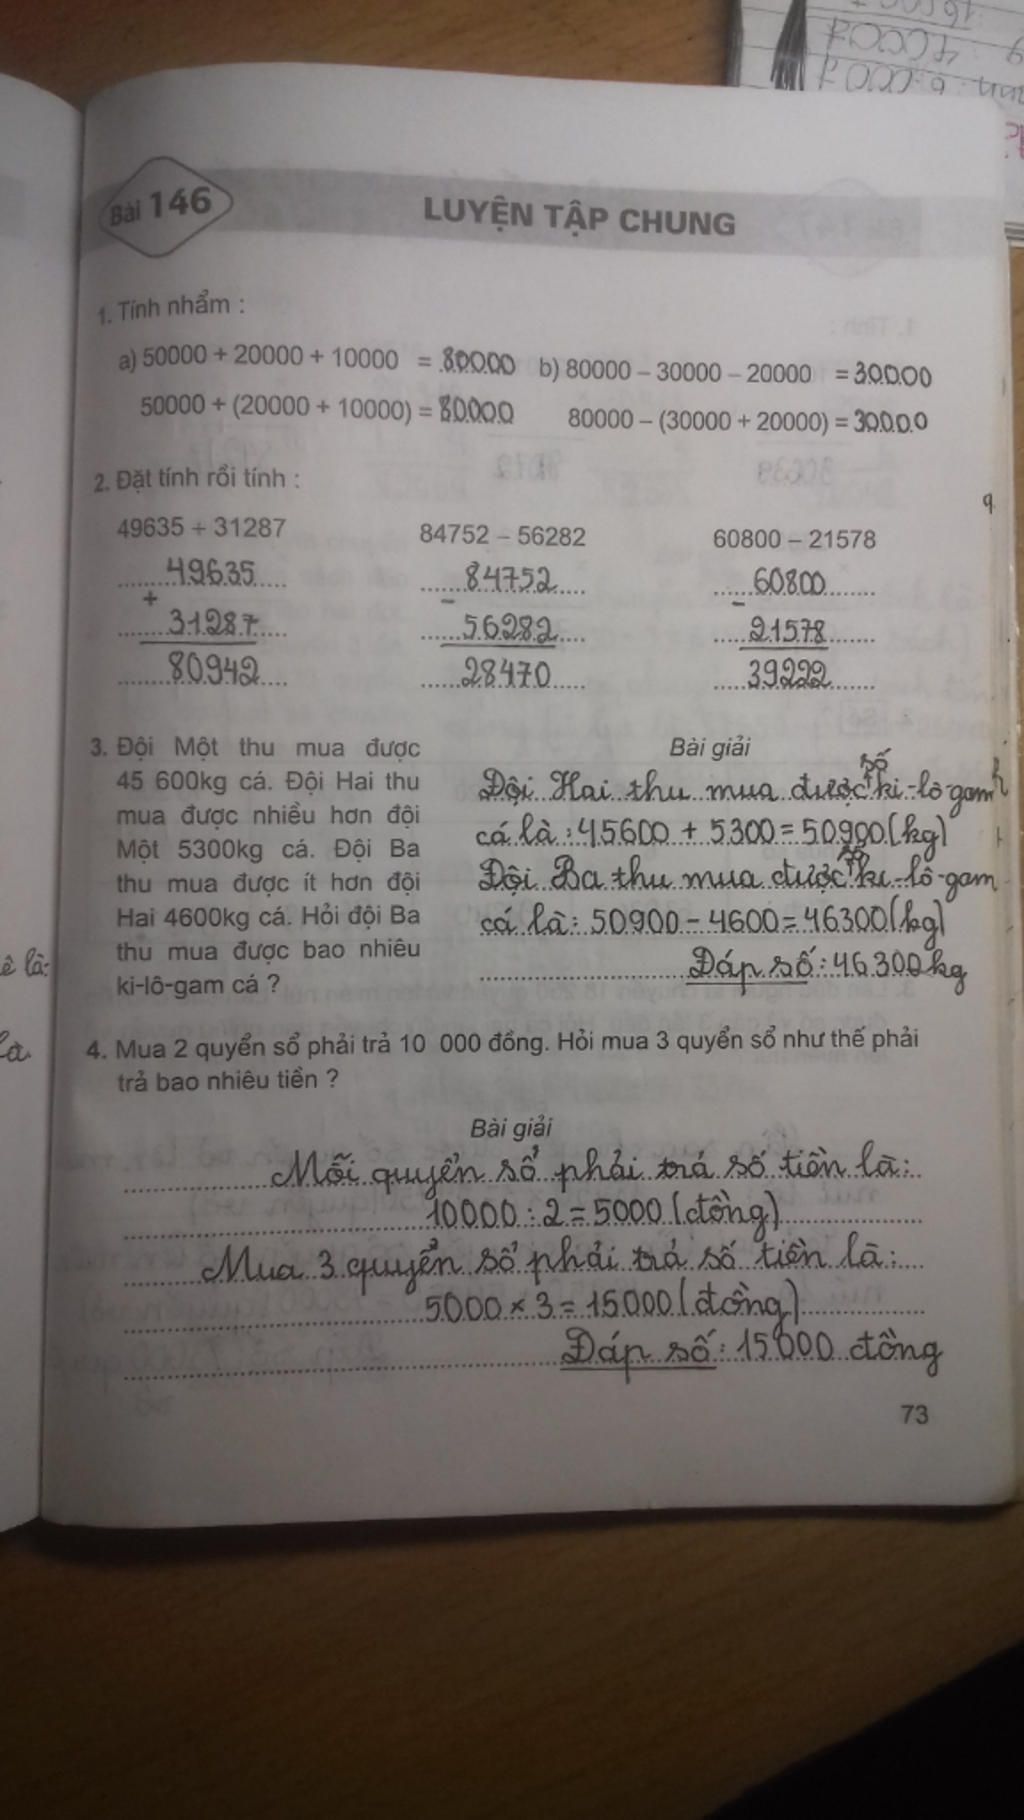 Bài 146
LUYỆN TẬP CHUNG
1. Tính nhẩm :
a) 50000 + 20000 + 10000 = 80000 b) 80000 – 30000 – 20000 = 30000
50000 + (20000 + 10000) = 80000 80000 – (30000 + 20000) = 30000
2. Đặt tính rồi tính :
49635 + 31287 84752 – 56282 60800 – 21578
49635 84752 60800
+ - -
31287 56282 21578
80942 28470 39222
3. Đội Một thu mua được
45 600kg cá. Đội Hai thu
mua được nhiều hơn đội
Một 5300kg cá. Đội Ba
thu mua được ít hơn đội
Hai 4600kg cá. Hỏi đội Ba
thu mua được bao nhiêu
ki-lô-gam cá ?
Bài giải
Đội Hai thu mua được số ki-lô-gam
cá là : 45600 + 5300 = 50900 (kg)
Đội Ba thu mua được số ki-lô-gam
cá là : 50900 - 4600 = 46300 (kg)
Đáp số : 46300kg
4. Mua 2 quyển sổ phải trả 10 000 đồng. Hỏi mua 3 quyển sổ như thế phải
trả bao nhiêu tiền ?
Bài giải
Mỗi quyển sổ phải trả số tiền là :
10000 : 2 = 5000 (đồng)
Mua 3 quyển sổ phải trả số tiền là :
5000 x 3 = 15000 (đồng)
Đáp số : 15000 đồng
73
ê là:
là